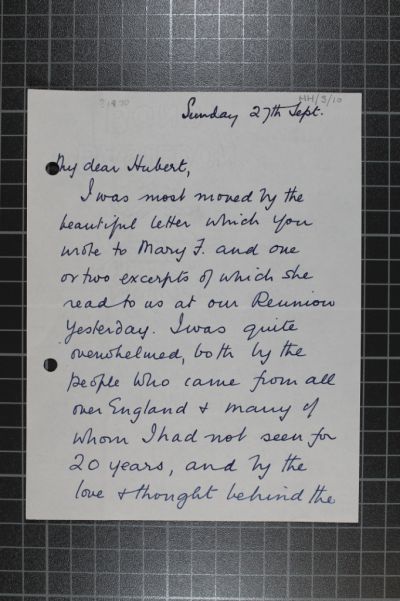 HH/3/10
Sunday 27th Sept.
My dear Hubert,
I was most moved by the
beautiful letter which you
wrote to Mary F. and one
or two excerpts of which she
read to us at our Reunion
yesterday. I was quite
overwhelmed, both by the
people who came from all
over England & many of
whom I had not seen for
20 years, and by the
love & thought behind the